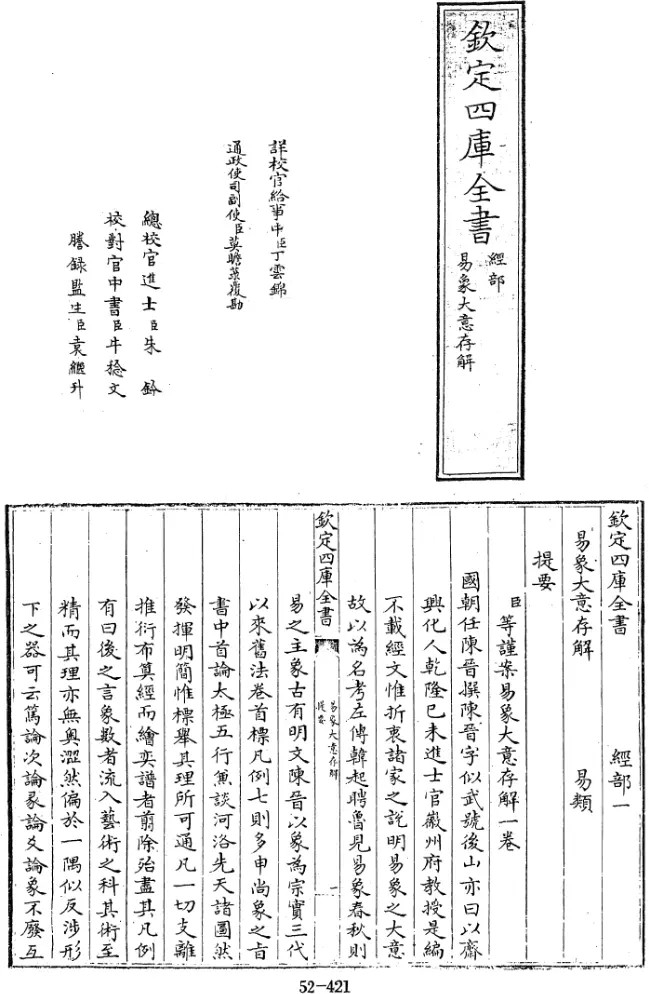 欽定四庫全書
經部
易象大意存解
詳校官給事中臣丁雲錦
通政使司副使臣莫瞻菉覆勘
總校官進士臣朱鈐
校對官中書臣牛稔文
謄錄監生臣袁繼升
欽定四庫全書 經部一
易象大意存解 易類
提要
臣等謹案易象大意存解一卷
國朝任陳晉撰陳晉字似武號後山亦曰以齋
興化人乾隆己未進士官徽州府教授是編
不載經文惟折衷諸家之說明易象之大意
故以為名考左傳韓起聘魯見易象春秋則
欽定四庫全書
易象大意存解
提要
一
易之主象古有明文陳晉以象為宗實三代
以來舊法卷首標凡例七則多申尚象之旨
書中首論太極五行兼談河洛先天諸圖然
發揮明簡惟標舉其理所可通凡一切支離
推衍布算經而繪奕譜者翦除殆盡其凡例
有曰後之言象數者流入藝術之科其術至
精而其理亦無奥澀然偏於一隅似反涉形
下之器可云篤論次論彖論爻論象不廢互
52-421